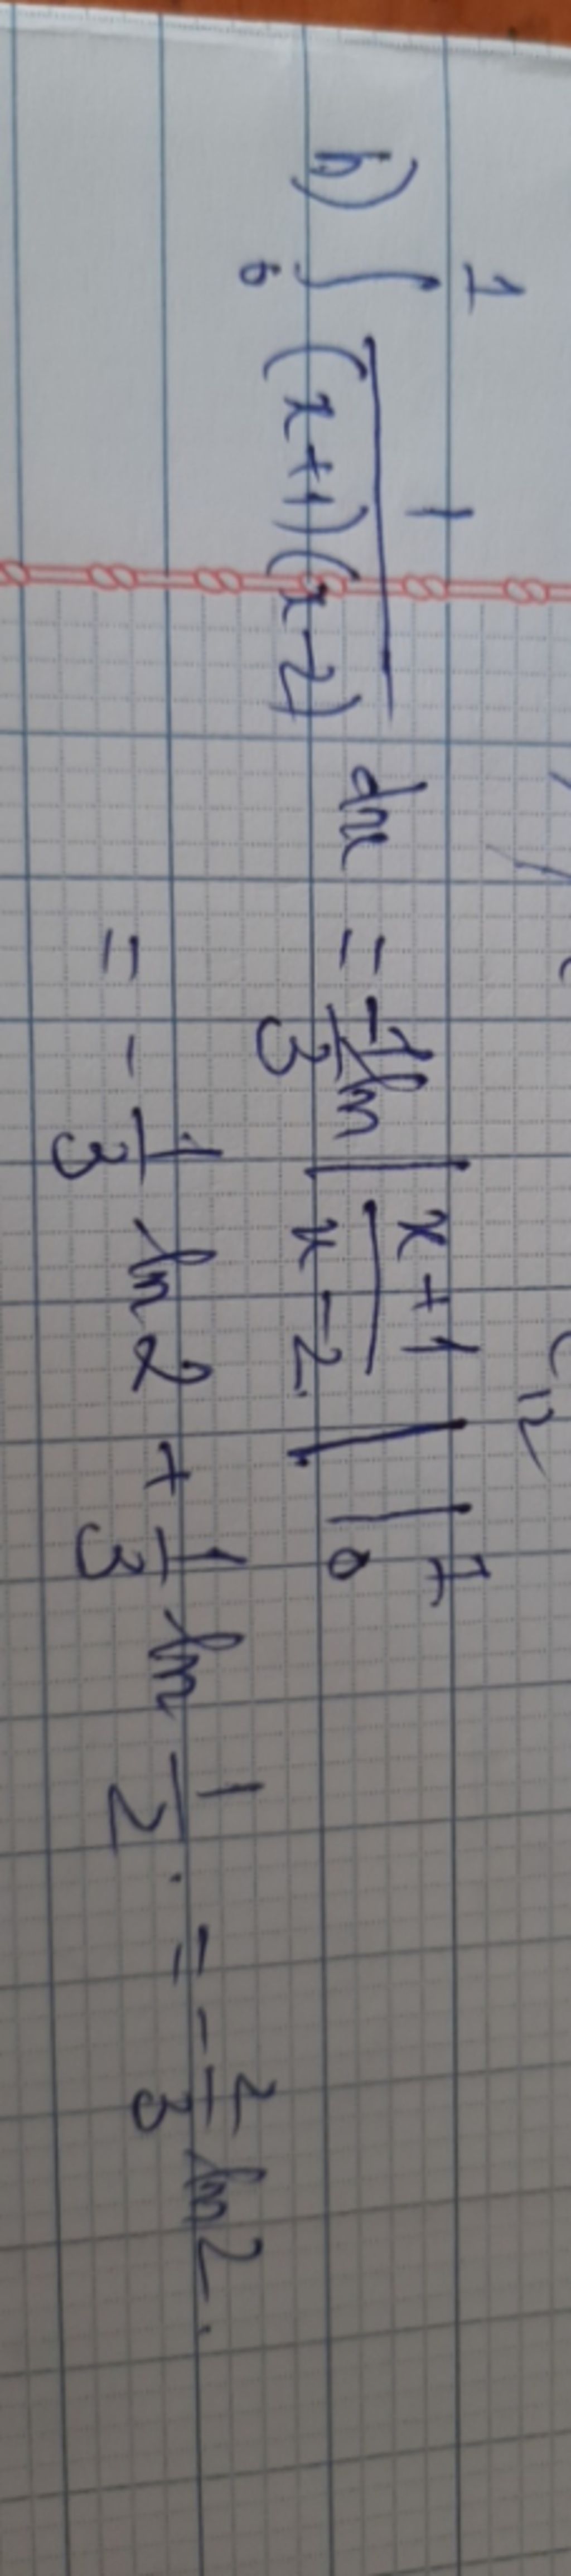 b) ∫₀¹ 1/((x+1)(x-2)) dx = -1/3 ln |(x+1)/(x-2)| |₀¹
= - 1/3 ln 2 + 1/3 ln 1/2 . = - 2/3 ln 2.